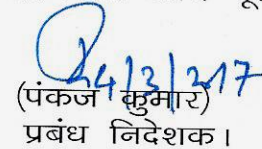 24/3/2017
(पंकज कुमार)
प्रबंध निदेशक।